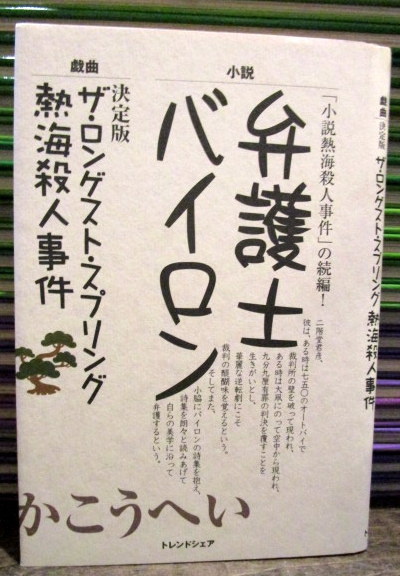 小説
「小説熱海殺人事件」の続編！
弁護士
バイロン
二階堂君彦。
彼は、ある時は七五〇のオートバイで
裁判所の壁を破って現われ、
ある時は大凧にのって空中から現われ、
九分九厘有罪の判決を覆すことを
生きがいとし、
華麗な逆転劇にこそ
裁判の醍醐味を覚えるという。
そしてまた、
小脇にバイロンの詩集を抱え、
詩集を朗々と読みあげて
自らの美学に沿って
弁護するという。
戯曲
決定版
ザ・ロンゲスト・スプリング
熱海殺人事件
かこうへい
トレンドシェア
戯曲 決定版 ザ・ロンゲスト・スプリング 熱海殺人事件